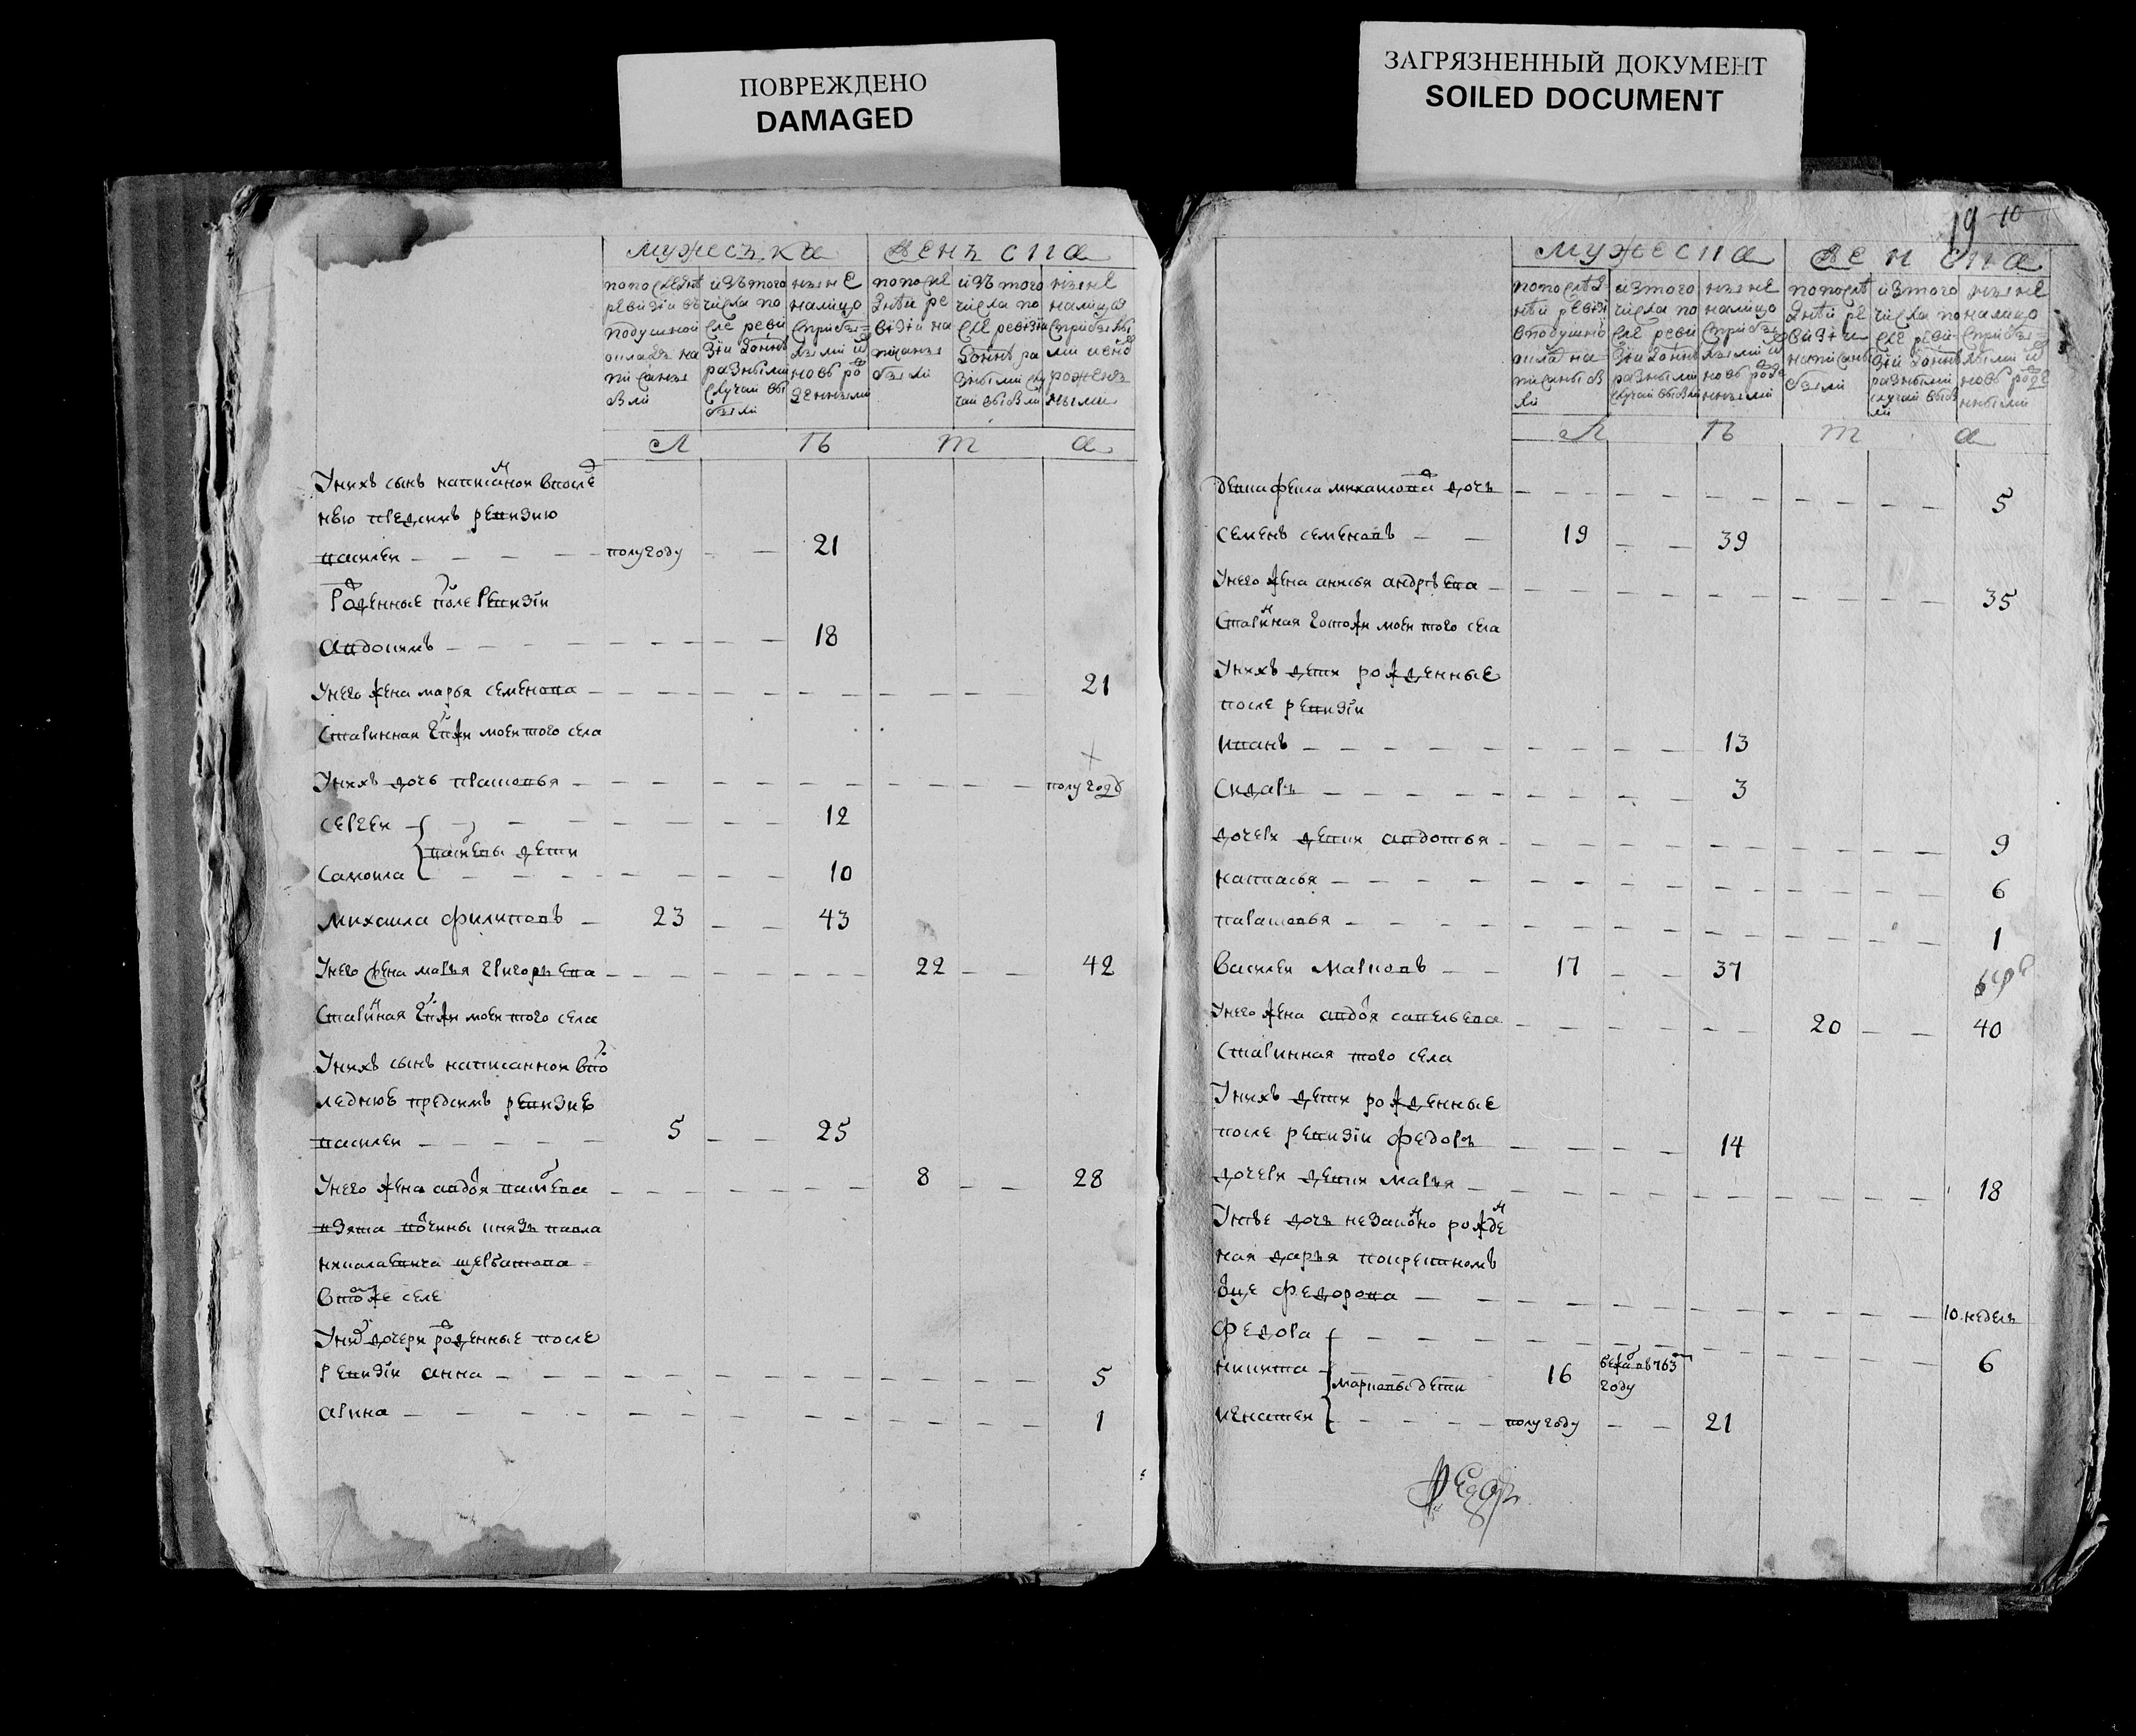 ПОВРЕЖДЕНО
DAMAGED
ЗАГРЯЗНЕННЫЙ ДОКУМЕНТ
SOILED DOCUMENT
мужеска женъска
по последне ревизіи въ подушной окладъ написаны были
изъ того числа после ревизіи до нне разными случаи выбыли
ныне налицо с прибылыми и новь рожденными
по последнеи ревизіи написаны были
изъ того числа после ревизіи до нне разными случаи выбыли
ныне налицо с прибылыми и новорожденными
л ѣ т а
У нихъ сынъ написанои в последнюю
пред симъ ревизию
василеи полугоду 21
Рожденные после Ревизіи
Авдокимъ 18
У него жена марья семенова 21
Старинная вотчины моеи того села
У нихъ дочь прасковья полугоду
сергеи 12
васильевы дети
самоила 10
михаила филиповъ 23 43
У него жена марья григорьева 22 42
Старинная вотчины моеи того села
У нихъ сынъ написаннои в последнюю
пред симъ ревизию
василеи 5 25
У него жена авдотья васильева 8 28
взята вотчины князь павла
николаевича щербатова
в томже селе
У них дочери рожденные после
Ревизіи анна 5
арина 1
19 10
мужеска женска
по последнѣй ревизіи в подушной оклад написаны были
из того числа после ревизіи до нне разными случаи выбыли
ныне налицо с прибылыми и новь рожденными
по последнѣй ревизіи написаны были
из того числа после ревизіи до нне разными случаи выбыли
ныне налицо с прибылыми и новь рожденными
л ѣ т а
девка фекла михаилова дочь 5
семенъ семеновъ 19 39
У него жена анисья андрѣева 35
Старинная вотчины моеи того села
У нихъ дети рожденные
после ревизіи
иванъ 13
сидаръ 3
дочери девки авдотья 9
настасья 6
парасковья 1
Василеи марковъ 17 37
У него жена авдотья савельева 20 40
Старинная того села
У нихъ дети рожденные
после ревизіи федоръ 14
дочери девки марья 18
У тее дочь незаконно рожденная
дарья по крестномъ
отце федорова 10 недель
федора 6
никита 16 бежал в 763 году
марковы дети
игнатеи полугоду 21